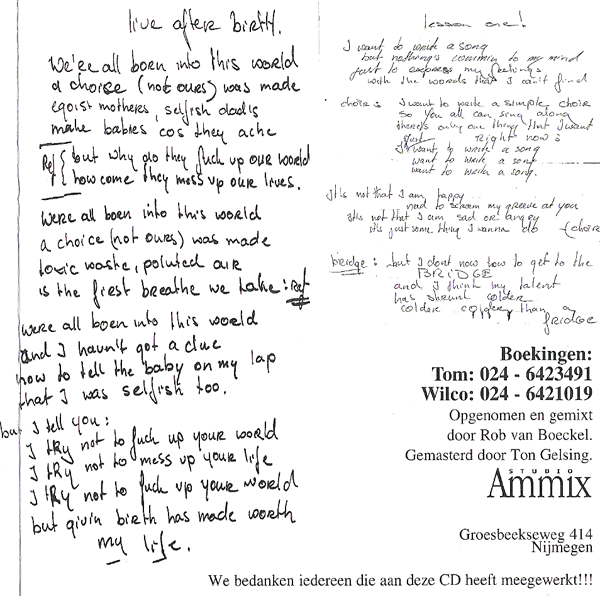 live after birth.
We're all born into this world
a choise (not ours) was made
egoist motheres, selfish dadis
make babies cos they ache
Ref { but why do they fuck up our world
how come they mess up our lives.
Were all born into this world
a choice (not ours) was made
toxic waste, poluted air
is the first breathe we take: Ref
were all born into this world
and I havn't got a clue
how to tell the baby on my lap
that I was selfish too.
but I tell you:
I try not to fuck up your world
I try not to mess up your life
I try not to fuck up your world
but givin birth has made worth
my life.
lesson one!
I want to write a song
but nothing's commin to my mind
just to express my feelings
with the words that I can't find
choir: I want to write a simple choir
so you all can sing along
there's only one thing that I want
just right now:
I want to write a song
want to write a song
want to write a song.
It's not that I am happy
need to scream my greeve at you
it's not that I am sad or angry
it's just some thing I wanna do (choir
bridge: but I dont now how to get to the
BRIDGE
and I think my talent
has shrunk colder
colder colder than a
fridge
Boekingen:
Tom: 024 - 6423491
Wilco: 024 - 6421019
Opgenomen en gemixt
door Rob van Boeckel.
Gemasterd door Ton Gelsing.
STUDIO
Ammix
Groesbeekseweg 414
Nijmegen
We bedanken iedereen die aan deze CD heeft meegewerkt!!!